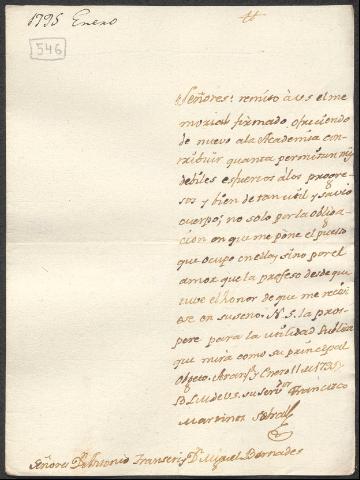 1795 Enero
546
Señores: remito à vs el me
morial firmado ofreciendo
de nuevo ala Academia con
tribuir quanto permitan mis
debiles esfuerzos alos progre
sos y bien de tan util y savio
cuerpo; no solo por la obliga
cion en que me pone el puesto
que ocupo en ella, sino por el
amor que la profeso desde que
tuve el honor de que me recivi
ese en su seno. N. S. la pros
pere para la utilidad publica
que mira como su principal
objeto. y Enero 11 de 1795
BLM de VS su Servor Francisco
Martinez Sobral
Señores Dn Antonio Franseri y Dn Miguel Barnades